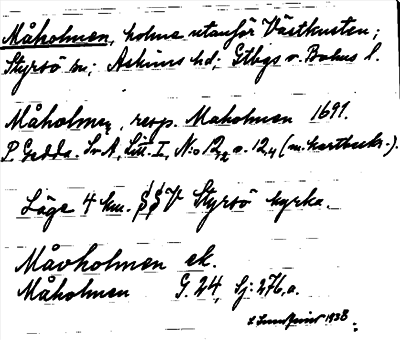 Måholmen, holme utanför Västkusten;
Styrsö sn; Askims hd; Gtbgs o. Bohus l.
Måholmen, resp. Maholmen 1691.
P Gedda. Sv A, Litt. I, N:o 12,2 o. 12,4 (m. kartbeskr.).
Läge 4 km. §§V Styrsö kyrka.
Måvholmen ek.
Måholmen G. 24, Sj. 276, a.
1938.